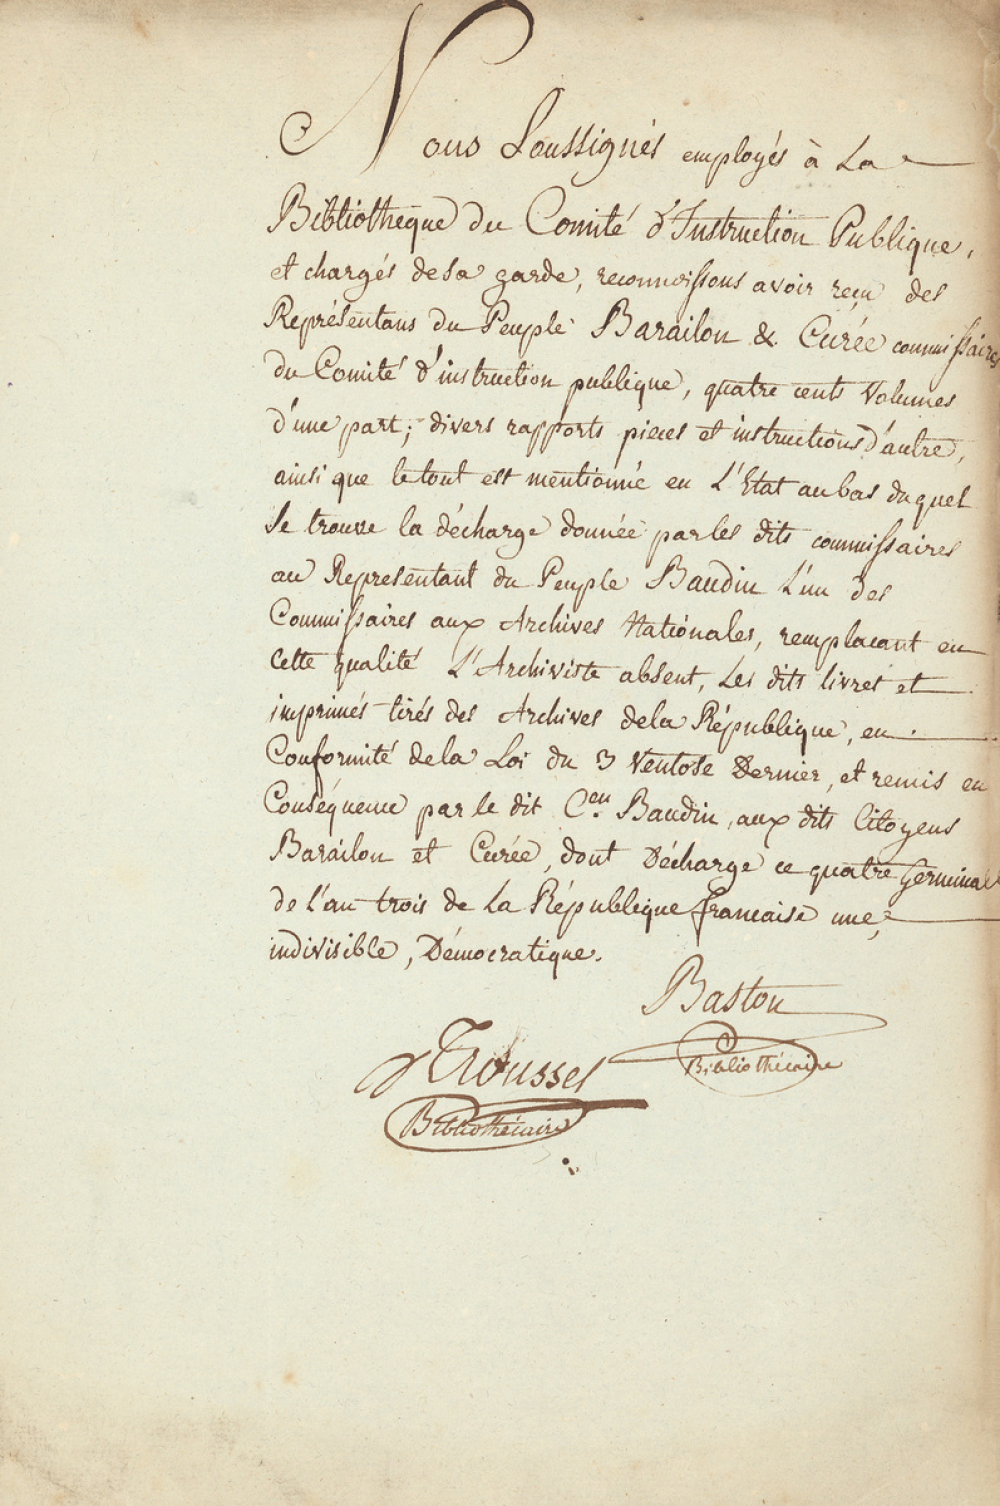 Nous Soussignés employés à La
Bibliothèque du Comité d'Instruction Publique,
et chargés de sa garde, reconnoissons avoir reçu des
Représentans du Peuple Barailon & Curée commissaires
du Comité d'instruction publique, quatre cents Volumes
d'une part; divers rapports pieces et instructions d'autre,
ainsi que le tout est mentionné en L'Etat au bas duquel
Se trouve la décharge donnée par les dits commissaires
au Representant du Peuple Baudin L'un des
Commissaires aux Archives Nationales, remplacant en
Cette qualité L'Archiviste absent, Les dits livres et
imprimés tirés des Archives de la République, en
Conformité de la Loi du 3 Ventose Dernier, et remis en
Conséquence par le dit C.en Baudin, aux dits Citoyens
Barailon et Curée, dont Décharge ce quatre Germinal
de l'an trois de La République francaise une,
indivisible, Démocratique.
Baston
Bibliothécaire
Trousset
Bibliothécaire